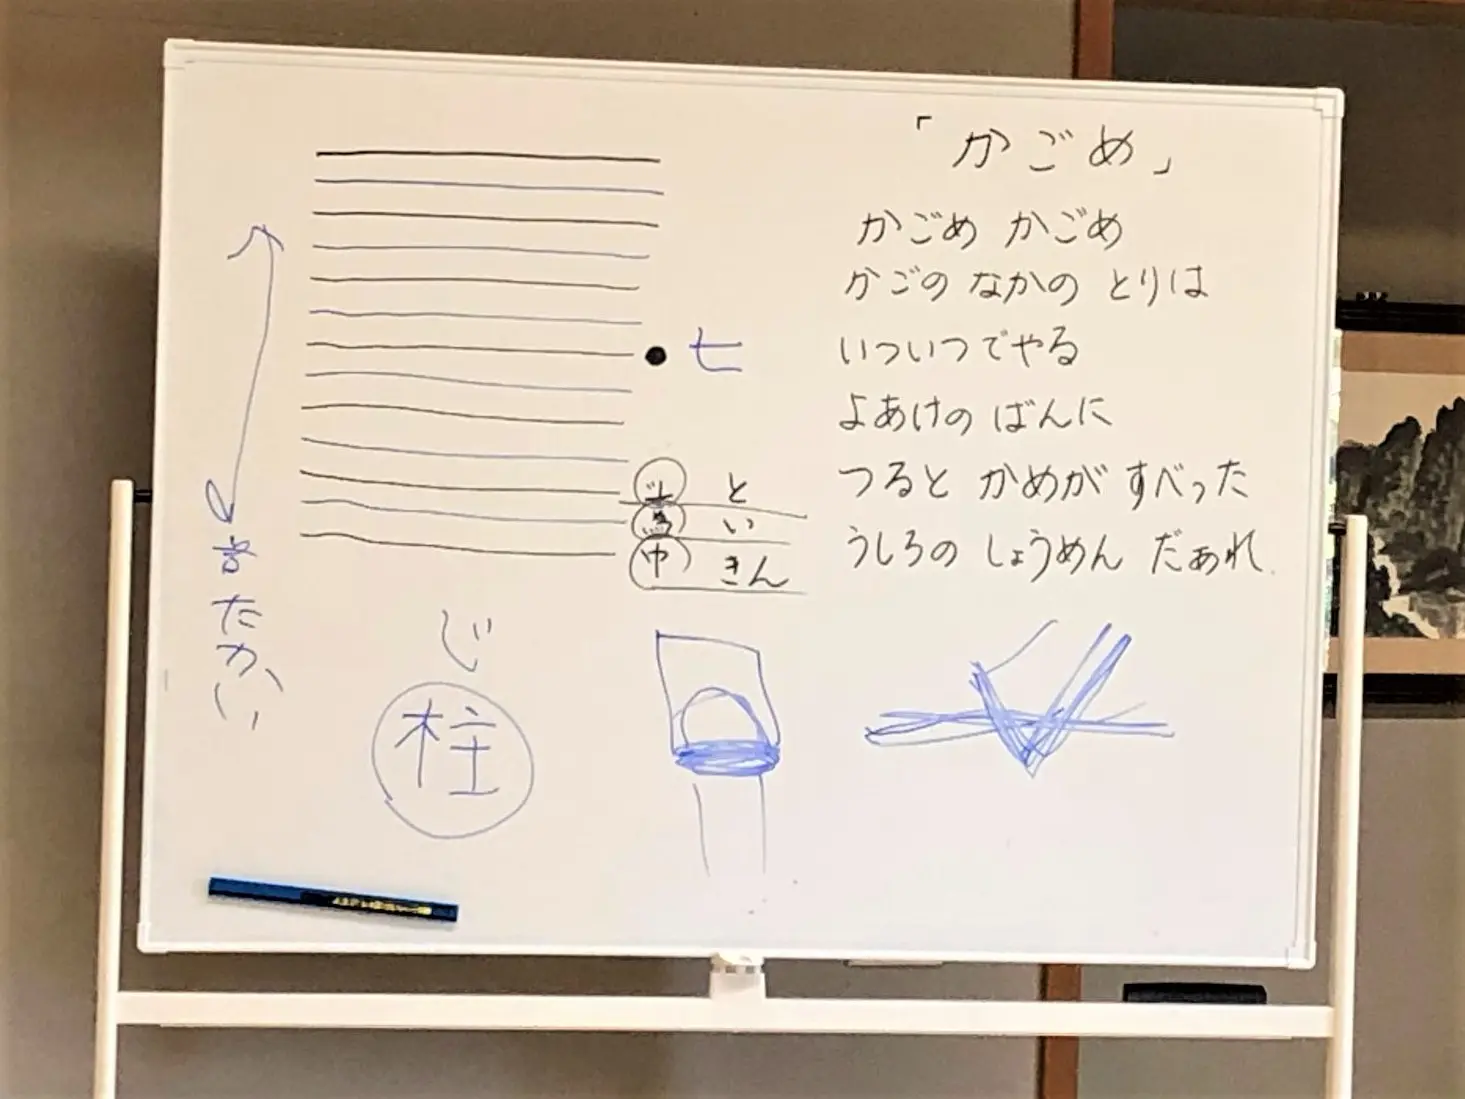 「かごめ」
かごめ かごめ
かごの なかの とりは
いついつでやる
よあけの ばんに
つると かめが すべった
うしろの しょうめん だぁれ
七
斗 と
為 い
巾 きん
音たかい
じ
柱